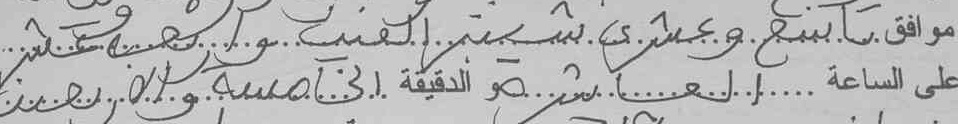 موافق تاسع وعشرى شتنبر الفين و اربعة عشر
على الساعة العاشرة و الدقيقة الخامسة والاربعين